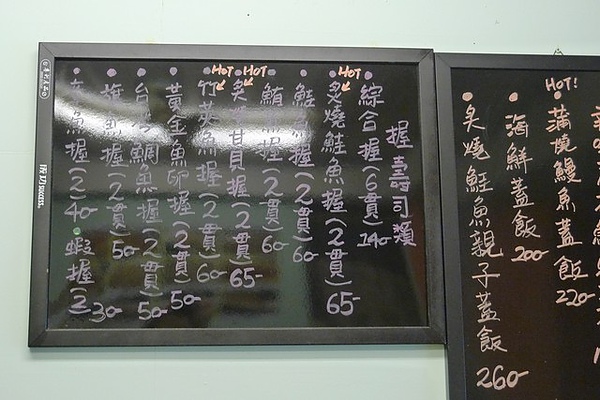 握壽司類
綜合握(6貫)140-
HOT
炙燒鮭魚握(2貫)65-
鮭魚握(2貫)60-
鮪魚握(2貫)60-
HOT
炙燒甘貝握(2貫)65-
HOT
竹莢魚握(2貫)60-
黃金魚卵握(2貫)50-
台灣鯛魚握(2貫)50-
旗魚握(2貫)50-
魚握(2)40-
蝦握(2 30-
HOT!
蒲燒鰻魚蓋飯220-
海鮮蓋飯200-
炙燒鮭魚親子蓋飯260-